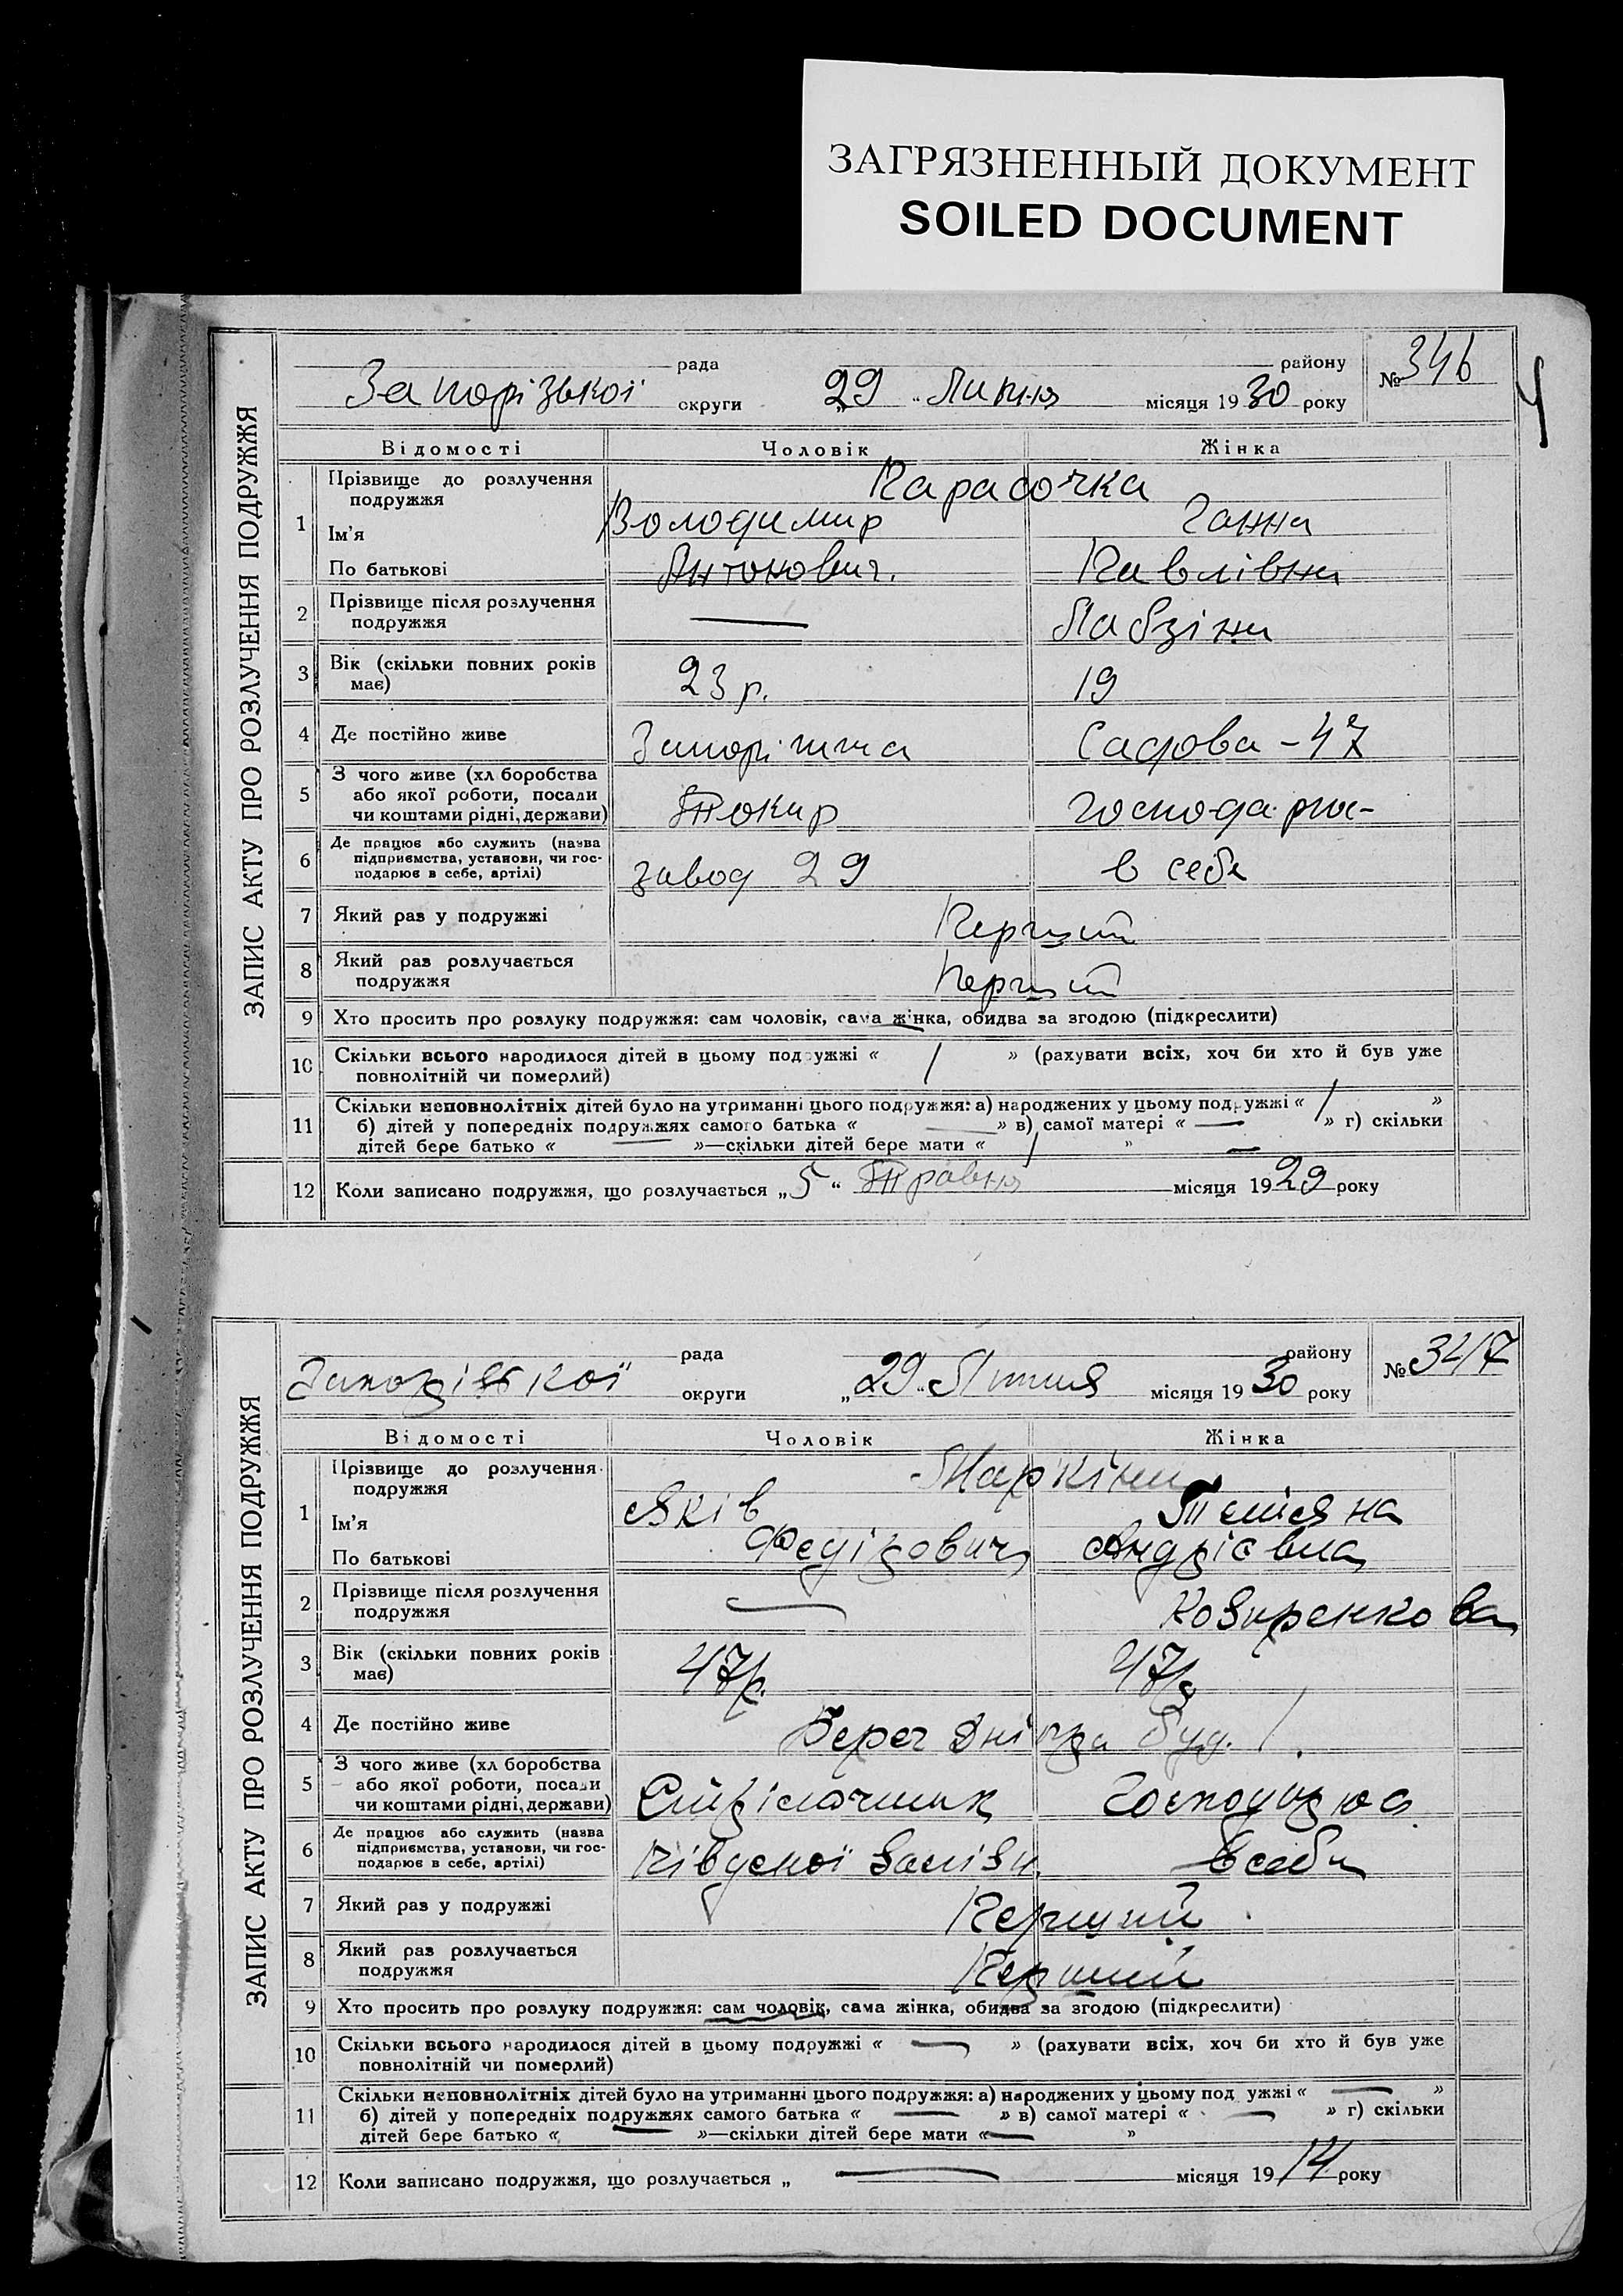 ЗАГРЯЗНЕННЫЙ ДОКУМЕНТ
SOILED DOCUMENT
ЗАПИС АКТУ ПРО РОЗЛУЧЕННЯ ПОДРУЖЖЯ
рада району № 346
Запорізької округи „29“ Липня місяця 1930 року
Відомості Чоловік Жінка
1 Прізвище до розлучення подружжя Карасочка
Ім'я Володимир Ганна
По батькові Антонович. Павлівна
2 Прізвище після розлучення подружжя — Лабзіна
3 Вік (скільки повних років має) 23 р. 19
4 Де постійно живе Запоріжжа Садова – 47
5 З чого живе (хл боробства або якої роботи, посади чи коштами рідні, держави) Токар господарює-
6 Де працює або служить (назва підприємства, установи, чи господарює в себе, артілі) завод 29 в себе
7 Який раз у подружжі Перший
8 Який раз розлучається подружжя Перший
9 Хто просить про розлуку подружжя: сам чоловік, сама жінка, обидва за згодою (підкреслити)
10 Скільки всього народилося дітей в цьому подружжі « 1 » (рахувати всіх, хоч би хто й був уже
повнолітній чи померлий)
11 Скільки неповнолітніх дітей було на утриманні цього подружжя: а) народжених у цьому подружжі « 1 »
б) дітей у попередніх подружжях самого батька « — » в) самої матері « — » г) скільки
дітей бере батько « — »—скільки дітей бере мати « 1 » —
12 Коли записано подружжя, що розлучається „5“ Травня місяця 1929 року
ЗАПИС АКТУ ПРО РОЗЛУЧЕННЯ ПОДРУЖЖЯ
рада району № 347
Запорізької округи „29“ Липня місяця 1930 року
Відомості Чоловік Жінка
1 Прізвище до розлучення подружжя Маркіни
Ім'я Яків Тетяна
По батькові Федірович Андрієвна
2 Прізвище після розлучення подружжя — Козиренкова
3 Вік (скільки повних років має) 47р. 47р
4 Де постійно живе Берег Дніпра буд. 1.
5 З чого живе (хл боробства або якої роботи, посади чи коштами рідні, держави) Стрілочник Господарює
6 Де працює або служить (назва підприємства, установи, чи господарює в себе, артілі) Південої залізн. в себе
7 Який раз у подружжі Перший
8 Який раз розлучається подружжя Перший
9 Хто просить про розлуку подружжя: сам чоловік, сама жінка, обидва за згодою (підкреслити)
10 Скільки всього народилося дітей в цьому подружжі « — » (рахувати всіх, хоч би хто й був уже
повнолітній чи померлий)
11 Скільки неповнолітніх дітей було на утриманні цього подружжя: а) народжених у цьому под ужжі « — »
б) дітей у попередніх подружжях самого батька « — » в) самої матері « — » г) скільки
дітей бере батько « — »—скільки дітей бере мати « — »
12 Коли записано подружжя, що розлучається „ — місяця 1914 року